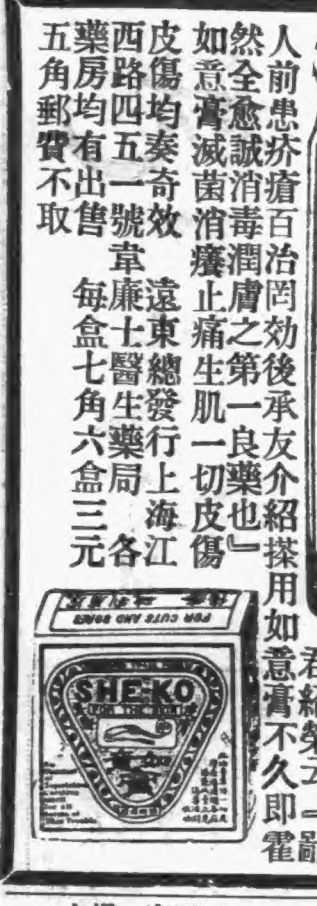 君紹榮云『鄙
人前患疥瘡百治罔効後承友介紹搽用如意膏不久即霍
然全愈誠消毒潤膚之第一良藥也』
如意膏滅菌消癢止痛生肌一切皮傷
皮傷均奏奇效　遠東總發行上海江
西路四五一號韋廉士醫生藥局　各
藥房均有出售　每盒七角六盒三元
五角郵費不取
FOR CUTS AND SORES
SHE-KO
FOR THE SKIN
膏意如